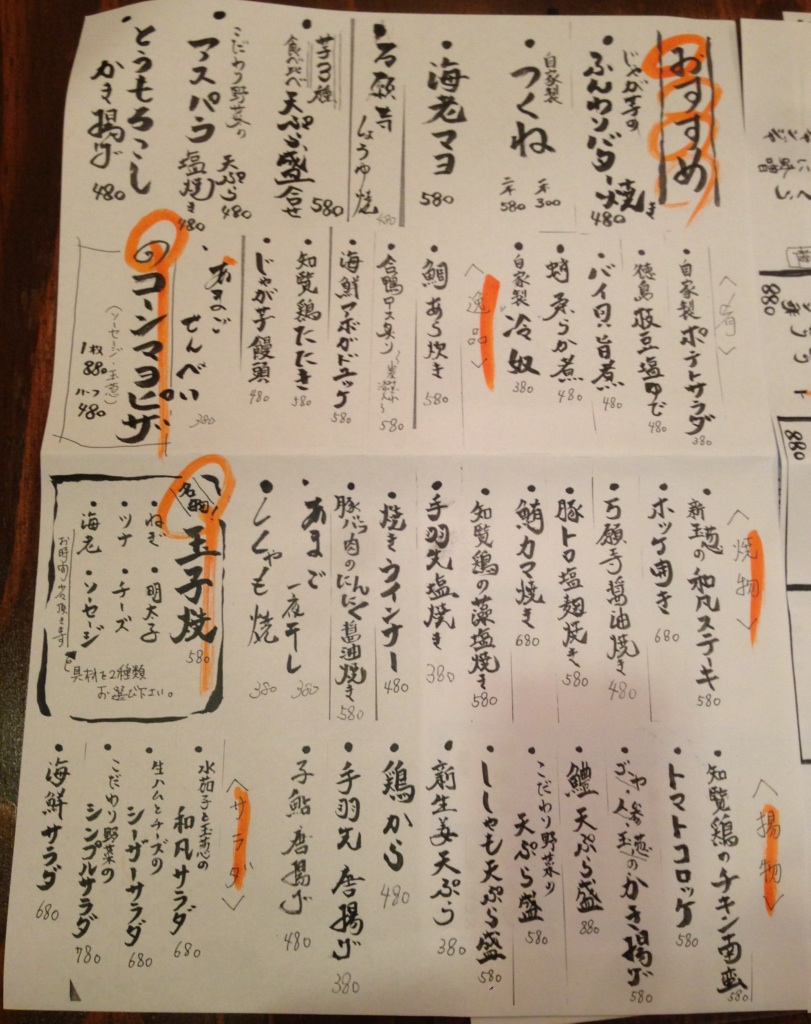 おすすめ
じゃが芋の
ふんわりバター焼き
480
自家製
つくね
一本 300
二本 580
海老マヨ
580
万願寺
しょうゆ焼
480
芋3種
食べ比べ 天ぷら盛合せ
580
こだわり野菜の
アスパラ
天ぷら 480
塩焼き 480
とうもろこし
かき揚げ
480
自家製 ポテトサラダ
380
徳島 枝豆塩ゆで
480
バイ貝 旨煮
480
蛸柔らか煮
480
自家製 冷奴
380
〈逸品〉
鯛あら炊き
580
合鴨ロース
580
海鮮アボガドユッケ
580
知覧鶏たたき
580
じゃが芋饅頭
480
あまご
せんべい
380
コーンマヨピザ
(ソーセージ・玉葱)
1枚 880
ハーフ 480
〈焼物〉
新玉葱の和風ステーキ
580
ホッケ開き
680
万願寺醤油焼き
480
豚トロ塩麹焼き
580
鮪カマ焼き
680
知覧鶏の藻塩焼き
580
手羽先塩焼き
380
焼きウインナー
480
豚バラ肉のにんにく醤油焼き
580
あまご
一夜干し
380
ししゃも焼
380
名物!
玉子焼
580
・ねぎ ・明太子
・ツナ ・チーズ
・海老 ・ソーセージ
具材を2種類
お選び下さい。
お時間少々頂きます
〈揚物〉
知覧鶏のチキン南蛮
580
トマトコロッケ
580
ゴーヤ・人参・玉葱の かき揚げ
580
鱧天ぷら盛
880
こだわり野菜の
天ぷら盛
580
ししゃも天ぷら盛
580
新生姜天ぷら
380
鶏から
480
手羽先 唐揚げ
380
子鮎唐揚げ
480
〈サラダ〉
水茄子と玉葱の
和風サラダ
680
生ハムとチーズの
シーザーサラダ
680
こだわり野菜の
シンプルサラダ
780
海鮮サラダ
680
880
880